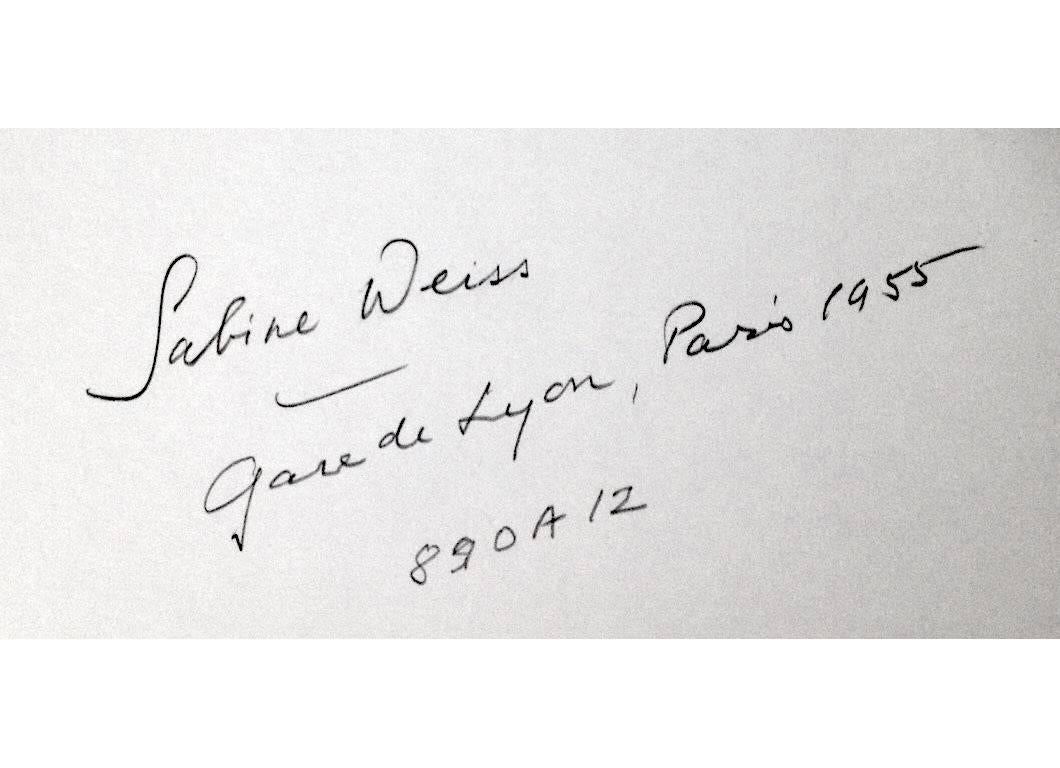 Sabine Weiss
Gare de Lyon, Paris 1955
890A12